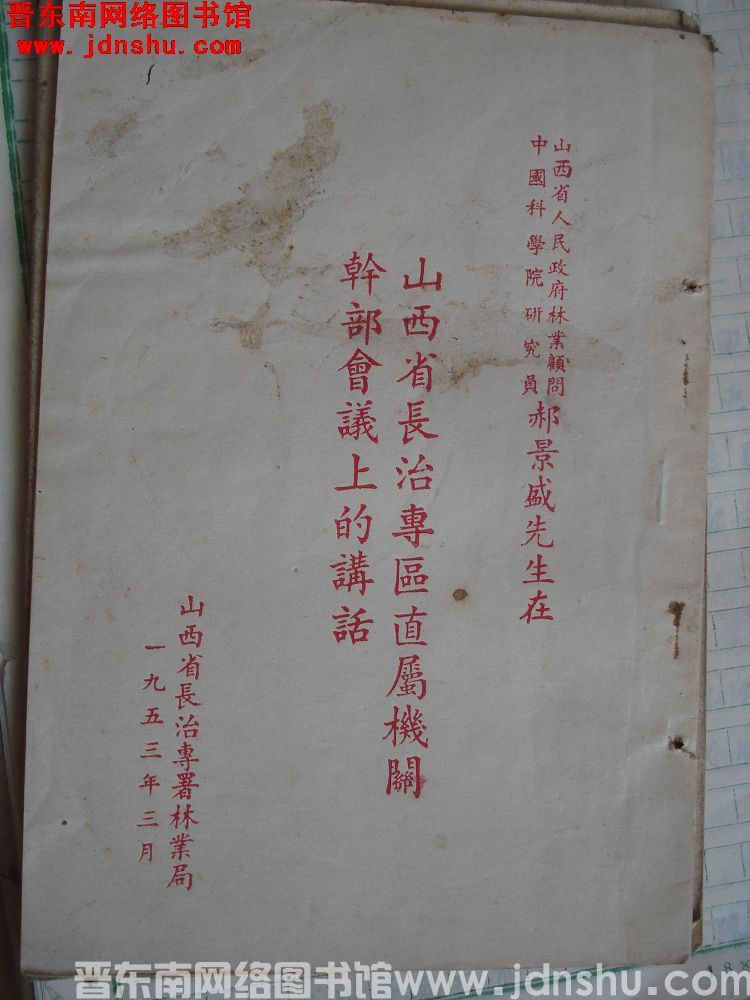 晋东南网络图书馆
www.jdnshu.com
山西省人民政府林業顧問
中國科學院研究員
郝景盛先生在
山西省長治專區直屬機關
幹部會議上的講話
山西省長治專署林業局
一九五三年三月
晋东南网络图书馆www.jdnshu.com